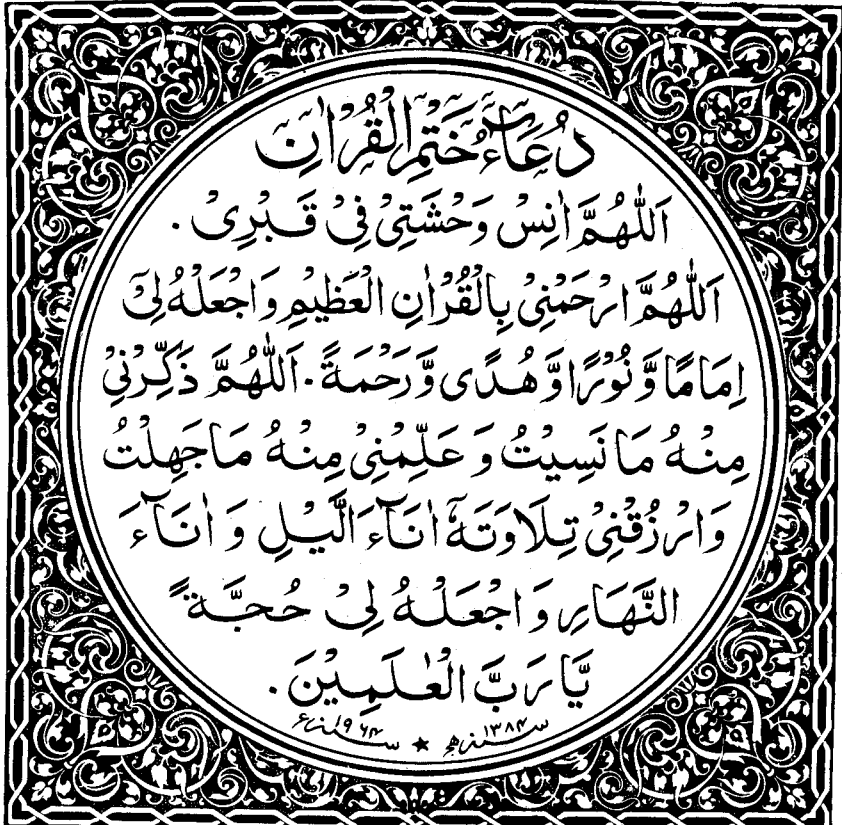 دُعَاءُ خَتْمِ الْقُرْاٰنِ
اَللّٰهُمَّ اٰنِسْ وَحْشَتِیْ فِیْ قَبْرِیْ ۔
اَللّٰهُمَّ ارْحَمْنِیْ بِالْقُرْاٰنِ الْعَظِیْمِ وَاجْعَلْهُ لِیْٓ
اِمَامًا وَّ نُوْرًا وَّ هُدًی وَّ رَحْمَةً ۔ اَللّٰهُمَّ ذَكِّرْنِیْ
مِنْهُ مَا نَسِیْتُ وَ عَلِّمْنِیْ مِنْهُ مَا جَهِلْتُ
وَارْزُقْنِیْ تِلَاوَتَهٗٓ اٰنَآءَ الَّیْلِ وَ اٰنَآءَ
النَّهَارِ وَاجْعَلْهُ لِیْ حُجَّةً
یَّا رَبَّ الْعٰلَمِیْنَ ۔
سنہ ۱۳۸۴ھ ★ سنہ ۱۹۶۴ء